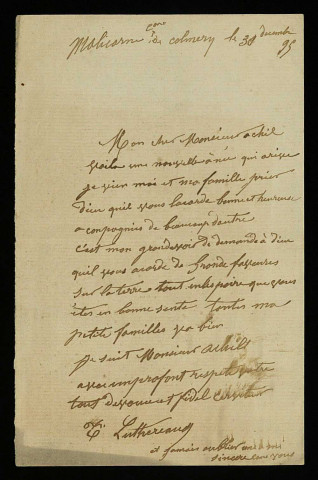 Malicorne cne de colmery le 30 décembre
95
Mon cher Monsieur achil
voila une nouvelle anée qui arive
je vien moi et ma famille prier
dieu quil vous lacorde bonne et heureuse
acompagnié de beaucoup dautre
c'est mon grand de demandé à dieu
quil vous acorde de grande faveures
sur la terre tout en lespoire que vous
êtes en bonne santé toutes ma
petite familles va bien
je suit Monsieur achille
avec un profont respet votre
tout dévoué et fidel
T. Luthereau
et jamais oublier ami
sincere